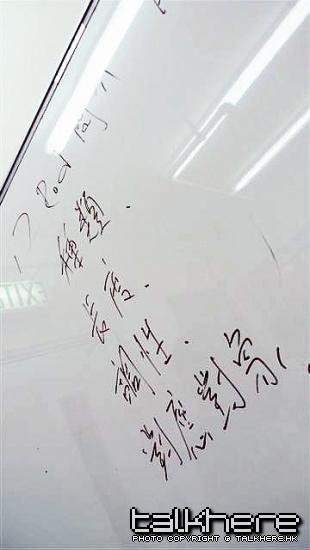 1) Rod 簡介
種類.
長度.
調性.
對應對象.
EXIT
talkhere
PHOTO COPYRIGHT © TALKHERE.HK